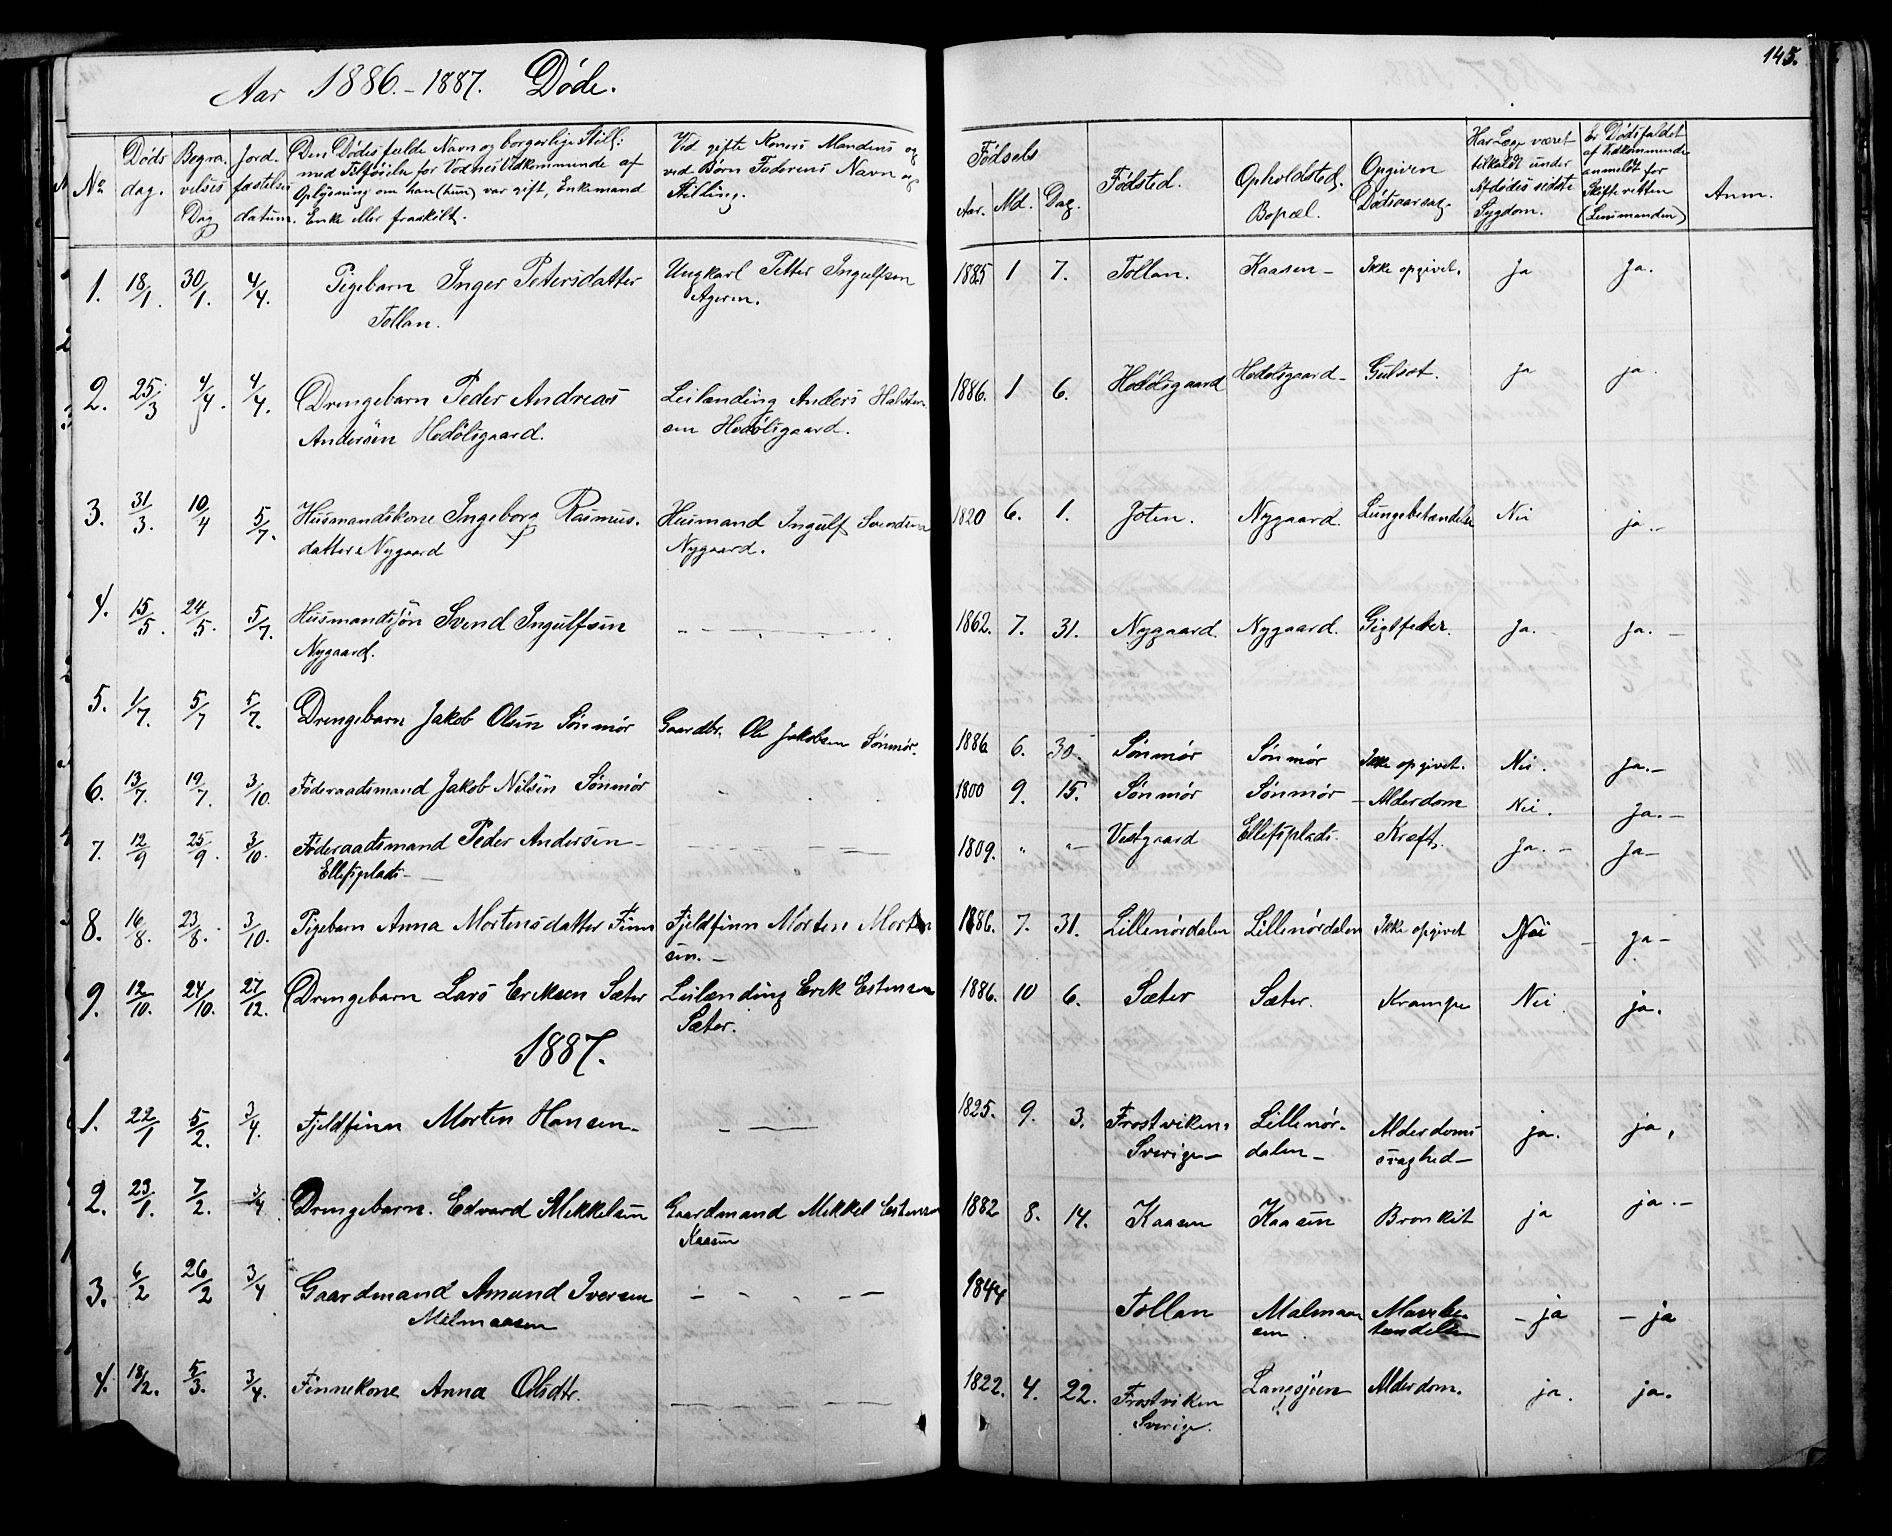 Aar 1886.-1887. Døde.
145.
No
Døds dag.
Begravelses Dag
Jordfæstelses datum.
Den Dødes fulde Navn og borgerlige Still:
med Tilføielse for Voxnes Vedkommende af
Oplysning om han (hun) var gift, Enkemand
Enke eller fraskilt.
Ved gifte Koners Mandens og
ved Børn Faderens Navn og
Stilling.
Fødsels
Aar. Md. Dag.
Fødsted.
Opholdsted.
Bopæl.
Opgiven
Dødsaarsag.
Har Læge været
tilkaldt under
Afdødes sidste
Sygdom.
Er Dødsfaldet
af Vedkommende
anmeldt for
Skifteretten
(Lensmanden)
Anm.
1. 18/1. 30/1. 4/4. Pigebarn Inger Petersdatter Ungkarl Petter Ingulfsen 1885 1 7. Tollan. Kaasen- Ikke opgivet. Ja Ja.
Tollan. Ageren.
2. 25/3 4/4. 4/4. Drengebarn Peder Andreas Leilænding Anders Halsten- 1886. 1 6. Hodölsgaard Hodolsgaard- Gulsot. ja ja.
Andersen Hodölsgaard. sen Hodölsgaard.
3. 31/3. 10/4 5/7. Husmandskone Ingeborg Rasmus- Husmand Ingulf Svendsen 1820 6. 1. Joten. Nygaard. Lungebetændelse Nei ja.-
datter Nygaard Nygaard.
4. 15/5. 24/5. 5/7. Husmandssøn Svend Ingulfsen 1862. 7. 31. Nygaard Nygaard. Gigtfeber. Ja.- Ja.-
Nygaard.
5. 1/7. 5/7 5/7. Drengebarn Jakob Olsen Sønmør Gaardbr. Ole Jakobsen Sønmør. 1886 6. 30. Sønmør Sønmør Ikke opgivet. Nei. Ja.-
6. 13/7. 19/7. 3/10. Føderaadsmand Jakob Nilsen Sønmør 1800 9. 15. Sønmør Sønmør- Alderdom Nei. Ja.-
7. 12/9 25/9. 3/10. Føderaadsmand Peder Andersen- 1809. " "- Vestgaard Ellefsplads. Kræft. Ja.- Ja-
Ellefsplads-
8. 16/8. 23/8. 3/10. Pigebarn Anna Mortensdatter Finn Fjeldfinn Morten Morten 1886. 7. 31. Lillenørdalen Lillenørdalen Ikke opgivet Nei - ja-
sen.-
9. 12/10. 24/10. 27/12. Drengebarn Lars Eriksen Sæter Leilænding Erik Estensen 1886. 10 6. Sæter Sæter. Krampe Nei ja.
Sæter.
1887.
1. 22/1 5/2. 3/4. Fjeldfinn Morten Hansen- 1825. 9. 3. Frostviken Lillenør- Alderdoms ja. ja,
Sverige- dalen- svaghed-
2. 23/1. 7/2. 3/4 Drengebarn. Edvard Mikkelsen Gaardmand Mikkel Estensen 1882 8. 14. Kaasen Kaasen Bronkit ja ja.-
Kaasen
3. 6/2 26/2 3/4 Gaardmand Amund Iversen 1844 Tollan Malmaa- Mavebe- - ja - ja
Malmaasen sen tændelse
4. 18/2. 5/3. 3/4. Finnekone Anna Olsdtr. 1822. 4. 22. Frostviken Langsjöen Alderdom. ja. ja.
Sverige.